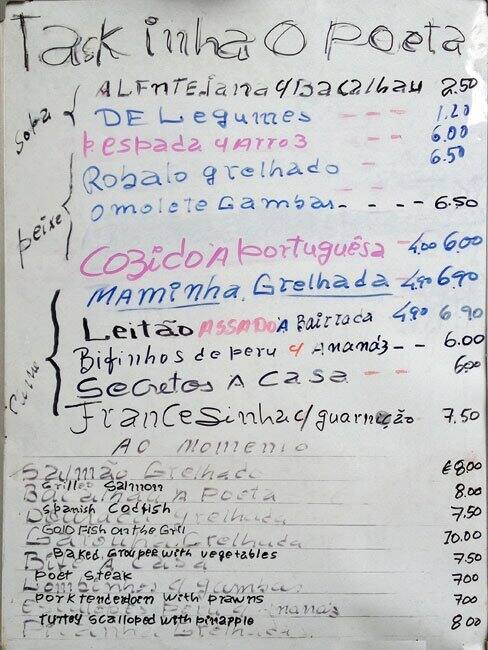 Taskinha O Poeta
Sopa
ALENTEJana c/Bacalhau 2.50
DE Legumes - - - 1.20
Pespada c/Arroz - - 6.00
Peixe
Robalo grelhado 6.50
Omolete Gambas - - - - 6.50
COZIDO A Portuguêsa - 4,00 6.00
MAMINHA. Grelhada 4,90 6,90
Leitão ASSADO A Bairrada 4,90 6 90
Bifinhos de peru c/ Ananás - - 6.00
Secretos A Casa - - - 6,00
Francesinha c/ guarnição 7.50
AO MOMENTO
Salmão Grelhado €8.00
Grilled Salmon
Bacalhau A Poeta 8.00
Spanish Codfish
Grelhada 7.50
Gold Fish on the Grill
Garoupa Grelhada 10.00
Baked Grouper with vegetables
Bife A Casa 7.50
Poet Steak
Lombinhos c/ gambas 7.00
Pork tenderloin with prawns
Peru c/ Ananás 7.00
Turkey scalloped with pineapple
Grelhada 8.00